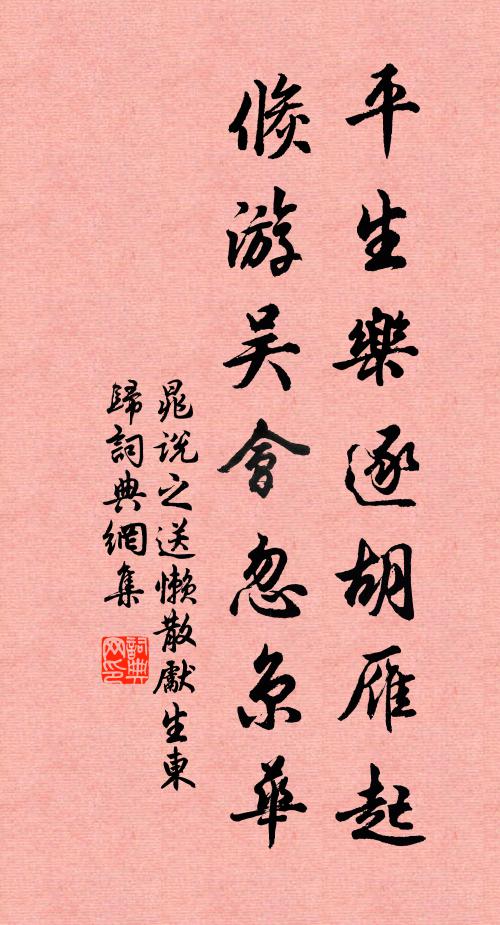 平生樂逐胡雁起
倏游吴會忽京華
晁説之送懒散獻生東
歸詞典網集
詞典
网印